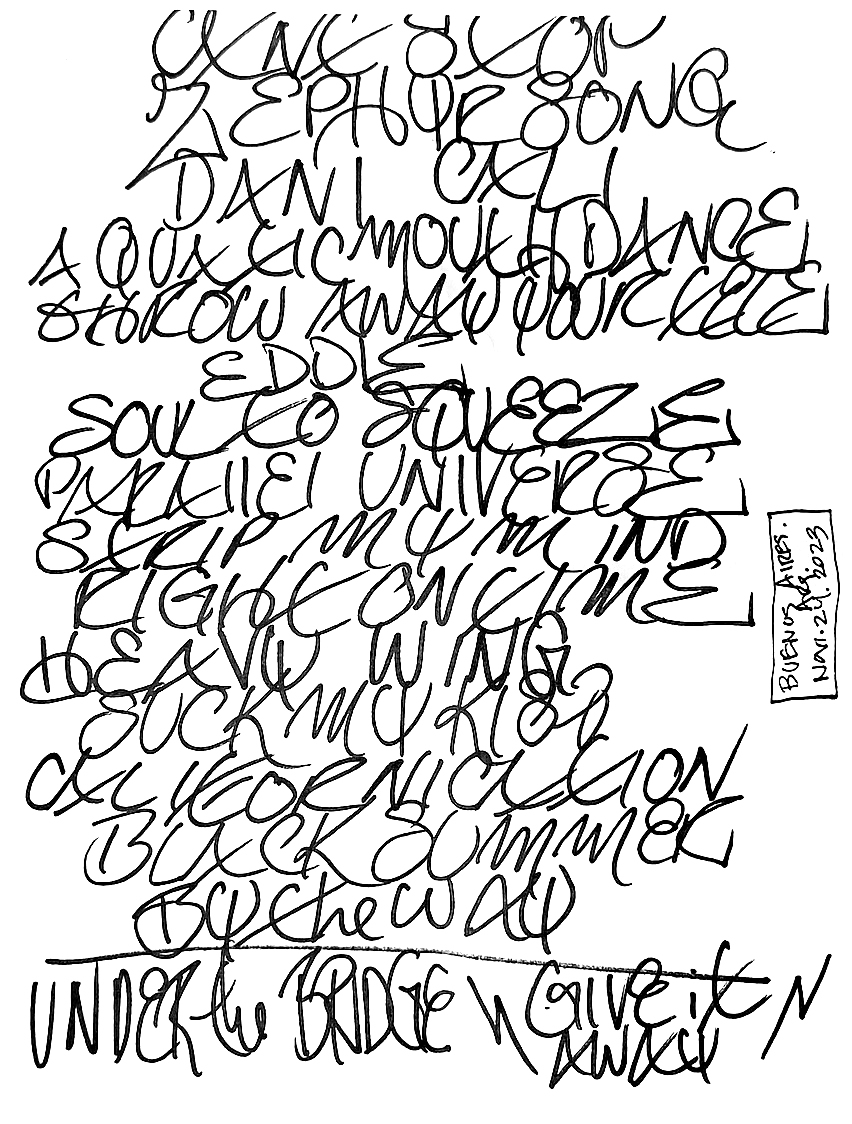 CAN'T STOP
ZEPHYR SONG
DANI CALI
AQUATIC MOUTH DANCE
THROW AWAY YOUR TELE
EDDIE
SOUL TO SQUEEZE
PARALLEL UNIVERSE
STRIP MY MIND
RIGHT ON TIME
HEAVY WING
SUCK MY KISS
CALIFORNICATION
BLACK SUMMER
BY the WAY
UNDER the BRIDGE \ GIVE it /
AWAY
BUENOS AIRES.
Arg.
Nov. 24. 2023